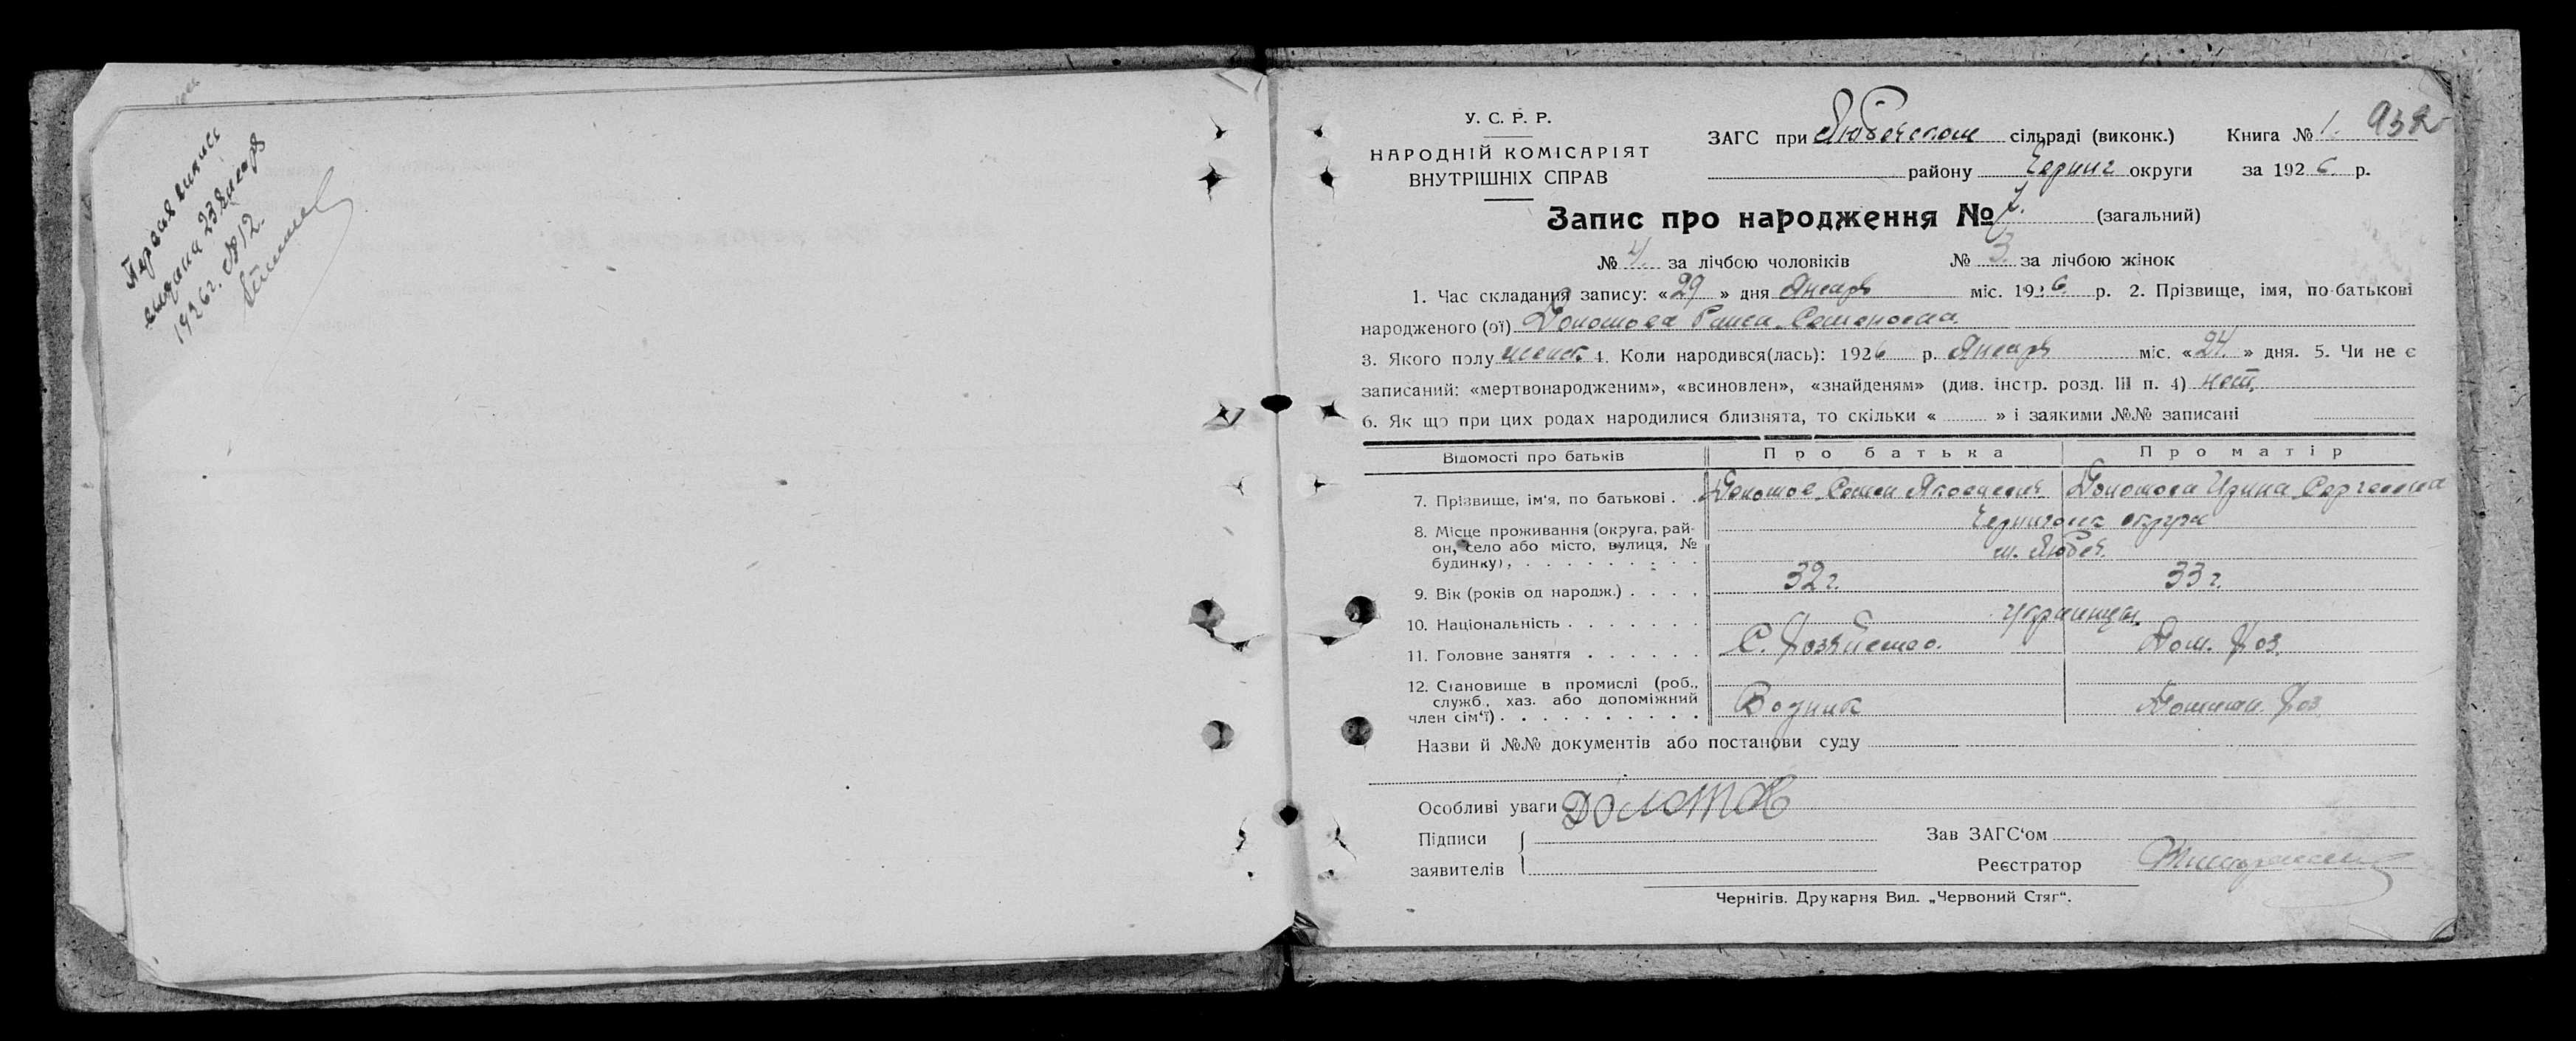 Первая выпись
выдана 23 Января
1926 г. № 12.
У. С. Р. Р.
НАРОДНІЙ КОМІСАРІЯТ
ВНУТРІШНІХ СПРАВ
ЗАГС при Любечском сільраді (виконк.) Книга № 1. 932
району Черниг округи за 1926. р.
Запис про народження № 7. (загальний)
№ 4. за лічбою чоловіків № 3. за лічбою жінок
1. Час складання запису: «29» дня Января міс. 1926. р. 2. Прізвище, імя, по-батькові
народженого (ої) Долотова Раиса Семеновна.
3. Якого полу женск. 4. Коли народився(лась): 1926 р. Января міс. «24.» дня. 5. Чи не є
записаний: «мертвонародженим», «всиновлен», «знайденям» (див. інстр. розд. III п. 4) нет.
6. Як що при цих родах народилися близнята, то скільки « » і заякими №№ записані
Відомості про батьків Про батька Про матір
7. Прізвище, ім'я, по батькові . . Долотов Семен Яковлевич Долотова Ирина Сергеевна
8. Місце проживання (округа, рай- Черниговск округа
он, село або місто, вулиця, № м. Любеч.
будинку), . . . . . . . . .
9. Вік (років од народж.) . . . . 32 г. 33 г.
10. Національність . . . . . . . Украинцы.
11. Головне заняття . . . . . . С. Хозяйство. Дом. Хоз.
12. Становище в промислі (роб.,
служб., хаз. або допоміжний
член сім'ї) . . . . . . . . . . Водник Домашн. Хоз.
Назви й №№ документів або постанови суду
Особливі уваги Долотов
Підписи
заявителів
Зав ЗАГС'ом
Реєстратор
Чернігів. Друкарня Вид. „Червоний Стяг“.